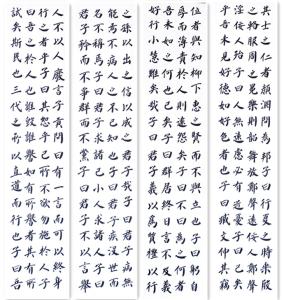 其士之仁者顏淵問為邦子曰行夏之時乘殷
之輅服周之冕樂則韶舞放鄭聲遠佞人鄭聲
淫佞人殆子曰人無遠慮必有近憂子曰已矣
乎吾未見好德如好色者也子曰臧文仲其竊
位者與知柳下惠之賢而不與立也子曰躬自
厚而薄責於人則遠怨矣子曰不曰如之何如之何者
吾末如之何也已矣子曰群居終日言不及義
好行小慧難矣哉子曰君子義以為質禮以行
之孫以出之信以成之君子哉子曰君子病無
能焉不病人之不己知也子曰君子疾沒世而
名不稱焉子曰君子求諸己小人求諸人子曰
君子矜而不爭群而不黨子曰君子不以言舉
人不以人廢言子貢問曰有一言而可以終身
行之者乎子曰其恕乎己所不欲勿施於人子
曰吾之於人也誰毀誰譽如有所譽者其有所
試矣斯民也三代之所以直道而行也子曰吾